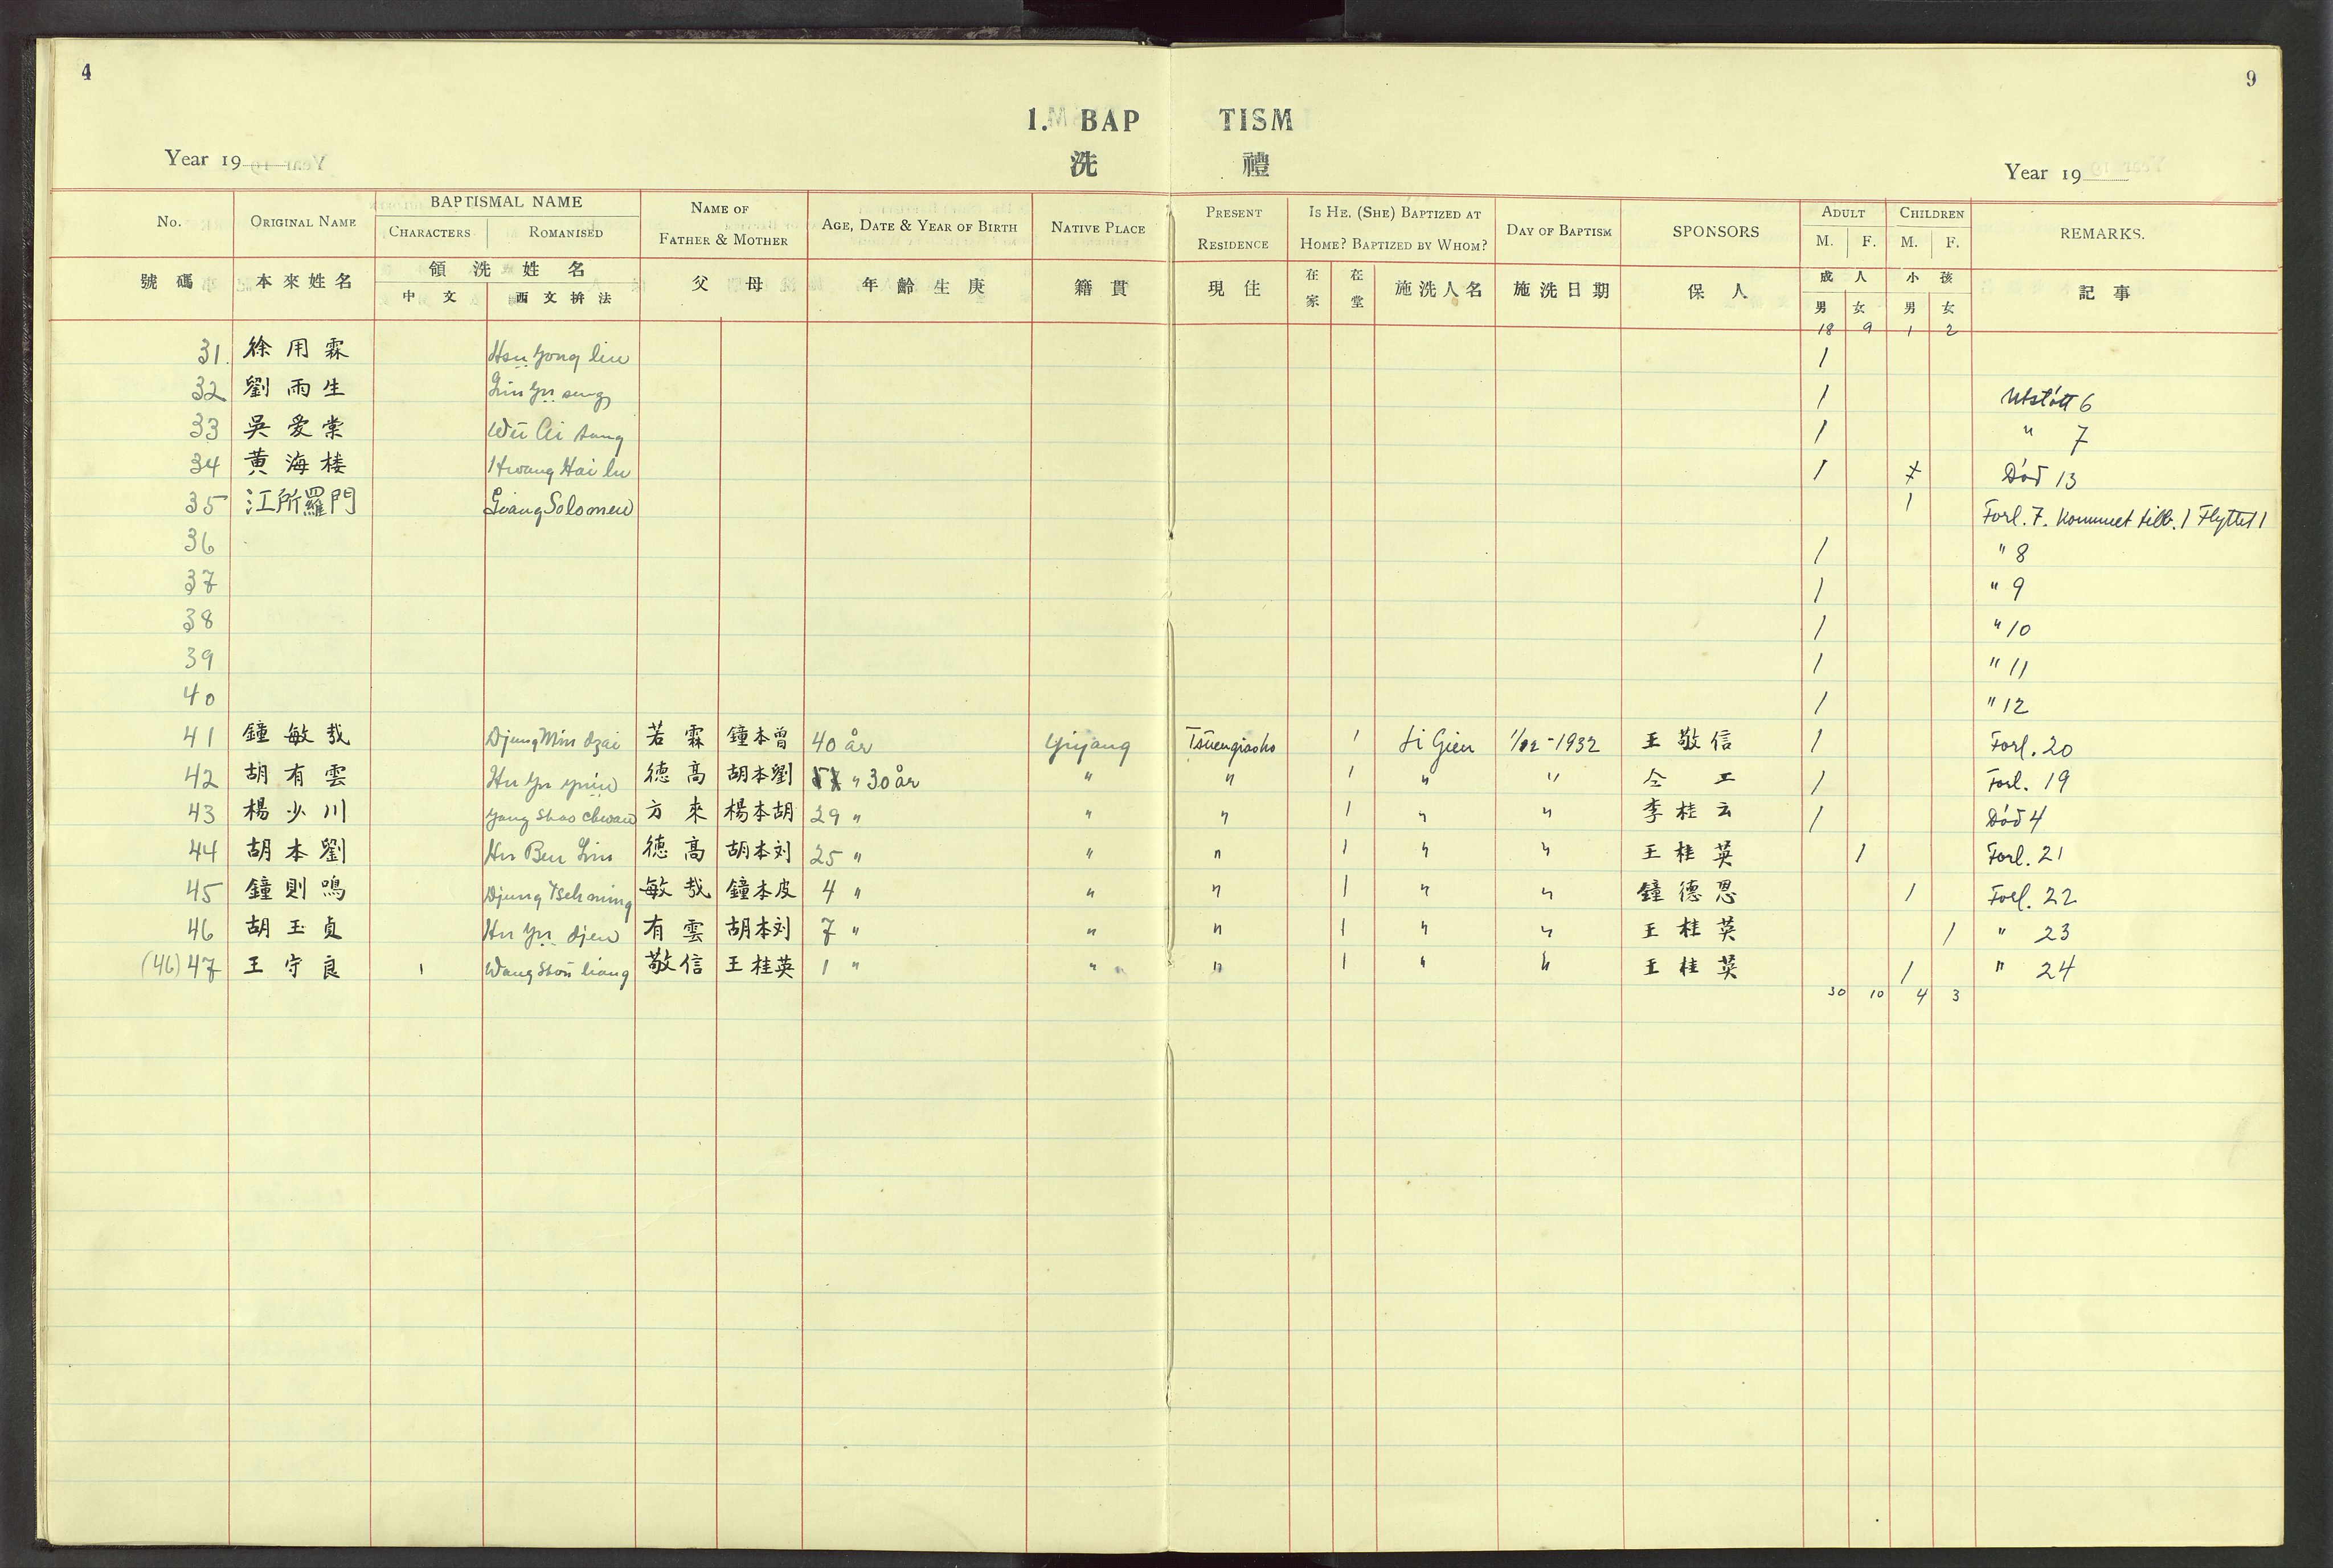 4
9
1. BAP TISM
洗 禮
Year 19
Year 19
No. ORIGINAL NAME BAPTISMAL NAME NAME OF FATHER & MOTHER AGE, DATE & YEAR OF BIRTH NATIVE PLACE PRESENT RESIDENCE IS HE, (SHE) BAPTIZED AT HOME? BAPTIZED BY WHOM? DAY OF BAPTISM SPONSORS ADULT CHILDREN REMARKS.
CHARACTERS ROMANISED M. F. M. F.
號碼 本來姓名 領洗姓名 父母 年齡生庚 籍貫 現住 在家 在堂 施洗人名 施洗日期 保人 成人 小孩 記事
中文 西文拚法 男 女 男 女
18 9 1 2
31. 徐用霖 Hsu Yong lin 1
32 劉雨生 Liu Yu seng 1 Utstött 6
33 吳爱棠 Wu Ai tang 1 " 7
34 黄海楼 Hwang Hai lu 1 Död 13
35 江所羅門 Giang Solomen 1 Forl. 7. Kommet tilb. 1 Flyttet 1
36 1 " 8
37 1 " 9
38 1 " 10
39 1 " 11
40 1 " 12
41 鐘敏哉 Djung Min dzai 若霖 鐘本曾 40 år Yiyang Tsüengiaoho 1 Li Gien 1/12-1932 王敬信 1 Forl. 20
42 胡有雲 Hu Yu yuin 德高 胡本劉 " 30 år " " 1 " " 仝 工 1 Forl. 19
43 楊少川 Yang Shao Chwan 方來 楊本胡 29 " " " 1 " " 李桂云 1 Död 4
44 胡本劉 Hu Ben Liu 德高 胡本刘 25 " " " 1 " " 王桂英 1 Forl. 21
45 鐘則鳴 Djung Tseh ming 敏哉 鐘本皮 4 " " " 1 " " 鐘德恩 1 Forl. 22
46 胡玉貞 Hu Yu djen 有雲 胡本刘 7 " " " 1 " " 王桂英 1 " 23
(46) 47 王守良 1 Wang Shou liang 敬信 王桂英 1 " " " 1 " " 王桂英 1 " 24
30 10 4 3